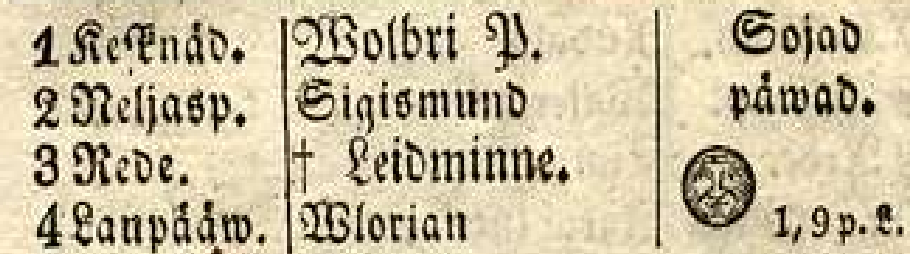 1 Keſknäd. Wolbri P. Sojad
2 Neljasp. Sigismund päwad.
3 Rede. † Leidminne.
4 Lanpääw. Wlorian 1, 9 p. l.